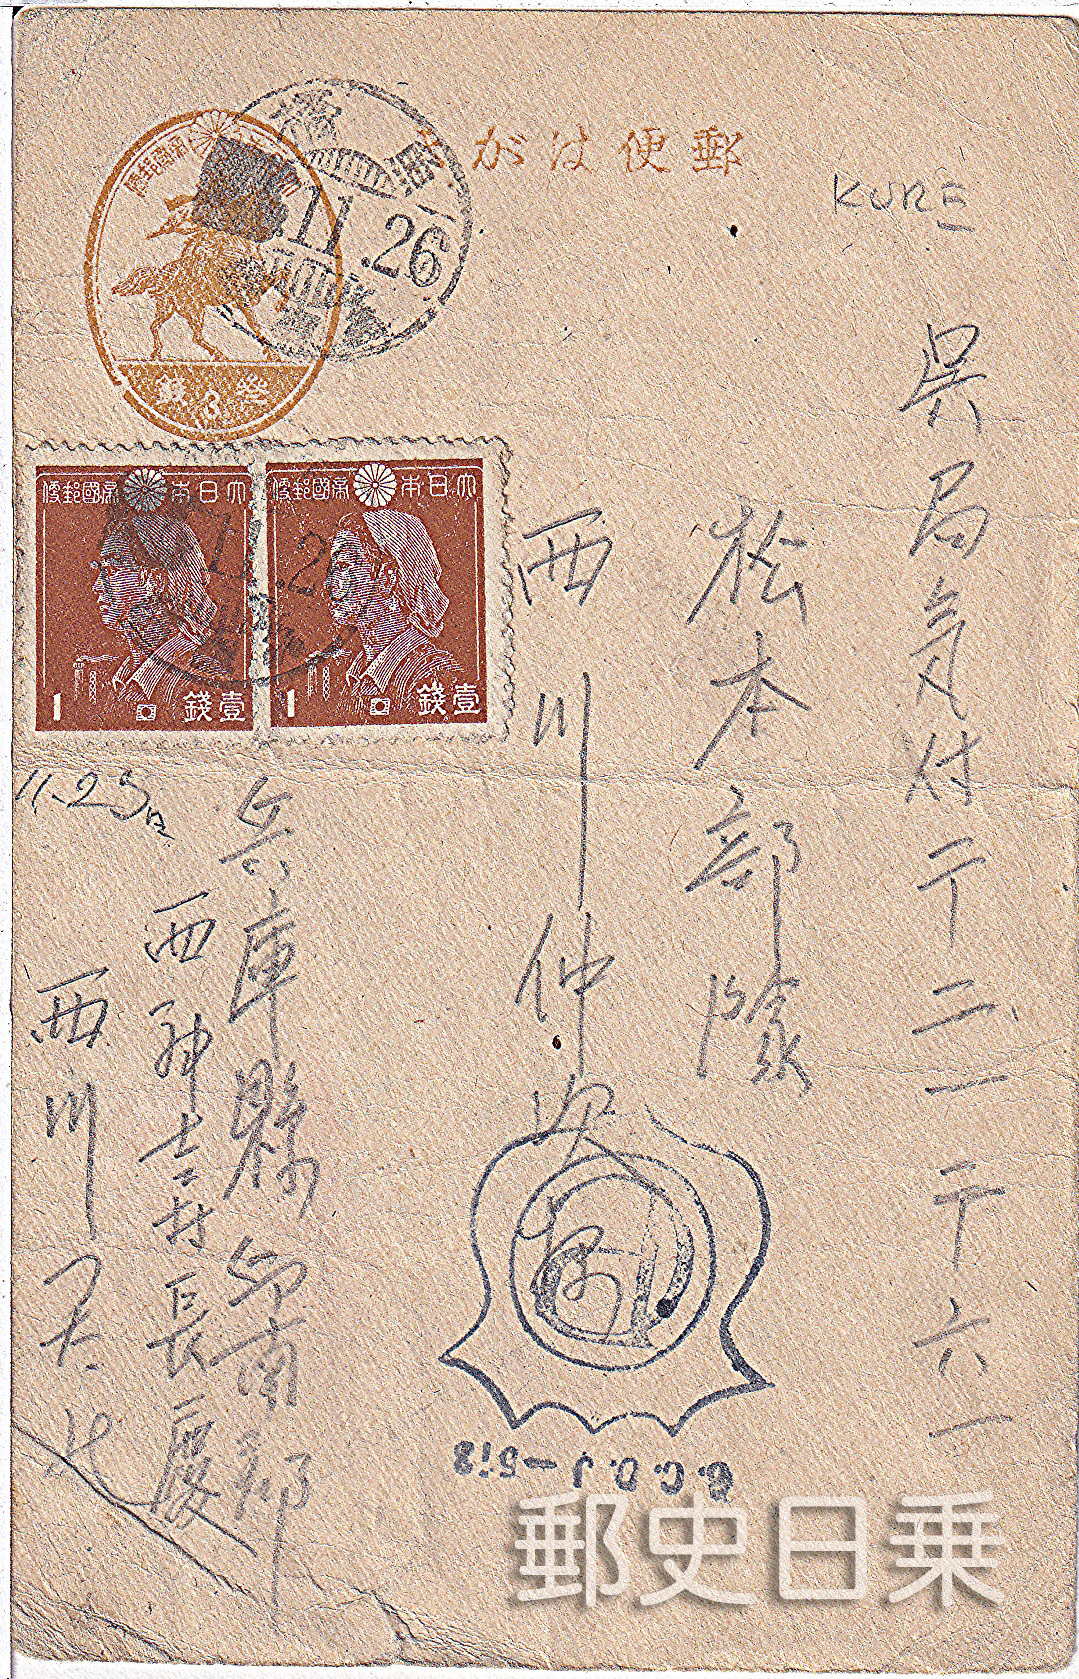 郵便はがき
KURE
呉局気付テ二一テ六一
松本部隊
西川仲次
兵庫縣印南郡
西神吉村長慶
西川
11.23日
橿
11.26
大日本帝國郵便
壹錢
1
大日本帝國郵便
壹錢
1
参錢
3
11.26
C.C.D.J-578
郵史日乗